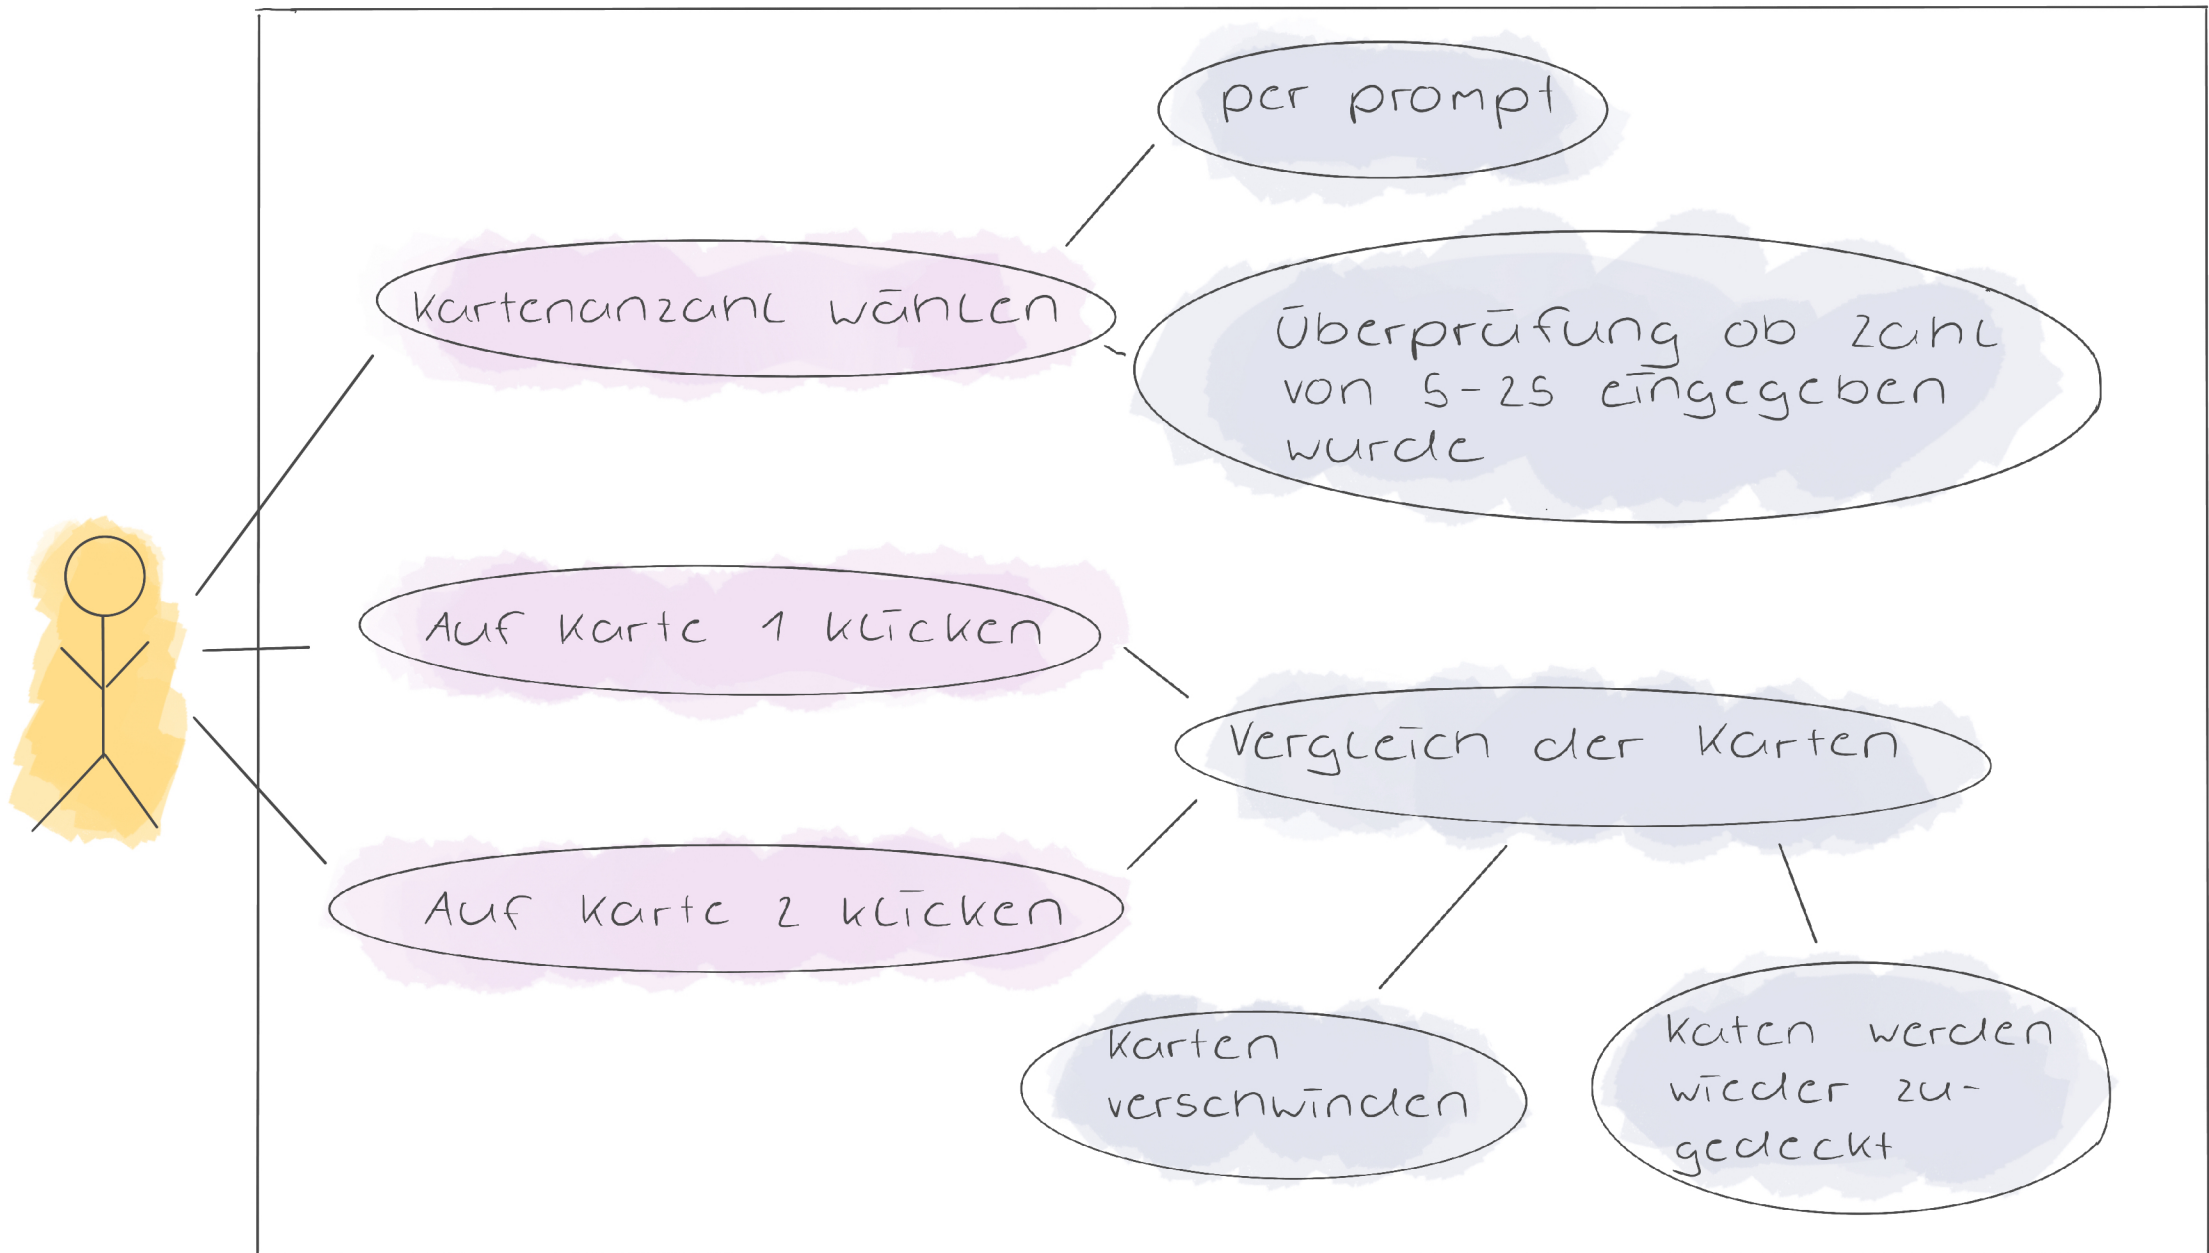 per prompt
Kartenanzahl wählen
Überprüfung ob Zahl
von 5-25 eingegeben
wurde
Auf Karte 1 klicken
Vergleich der Karten
Auf Karte 2 klicken
Karten
verschwinden
Katen werden
wieder zu-
gedeckt